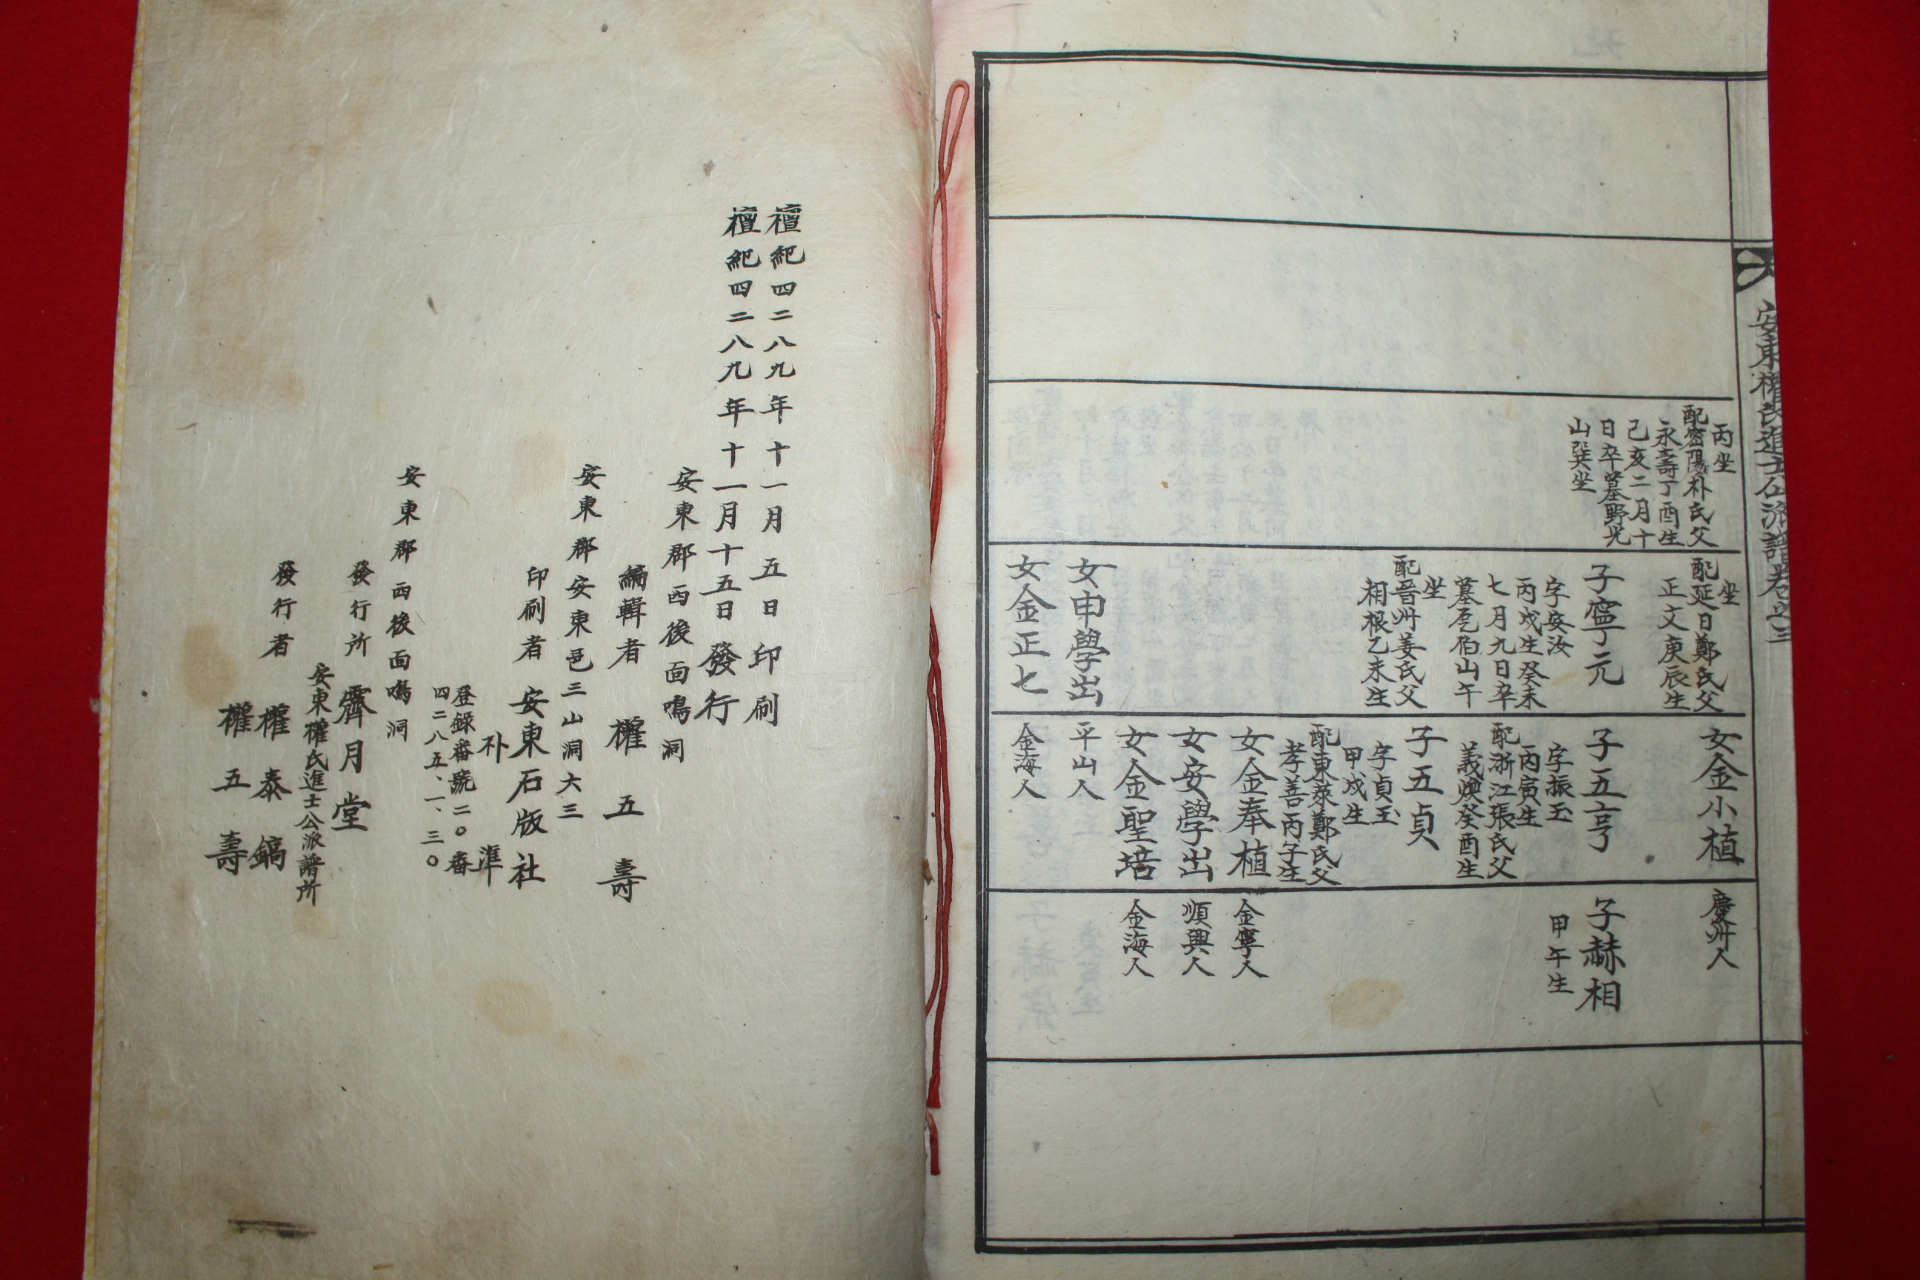 安東權氏進士公派譜卷之三
丙坐
配密陽朴氏父
永壽丁酉生
己亥二月十
日卒墓野光
山巽坐
坐
配延日鄭氏父
正文庚辰生
子寧元
字安汝
丙戌生癸未
七月九日卒
墓巵伯山午
坐
配晋州姜氏父
相根乙未生
女申學出
女金正七
女金小植
子五亨
字振玉
丙寅生
配浙江張氏父
義煥癸酉生
子五貞
字貞玉
甲戌生
配東萊鄭氏父
孝善丙子生
女金奉植
女安學出
女金聖培
平山人
金海人
慶州人
子赫相
甲午生
金寧人
順興人
金海人
檀紀四二八九年十一月五日印刷
檀紀四二八九年十一月十五日發行
安東郡西後面鳴洞
編輯者 權五壽
安東郡安東邑三山洞六三
印刷者 安東石版社
朴準
登錄番號二〇番
四二八五、一、三〇
安東郡西後面鳴洞
發行所 霽月堂
安東權氏進士公派譜所
發行者 權泰鎬
權五壽